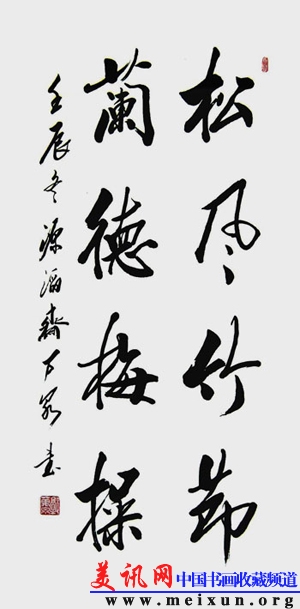 松风竹节
蘭德梅操
壬辰冬源滔斋万家书
美讯网 中国书画收藏频道
www.meixun.org